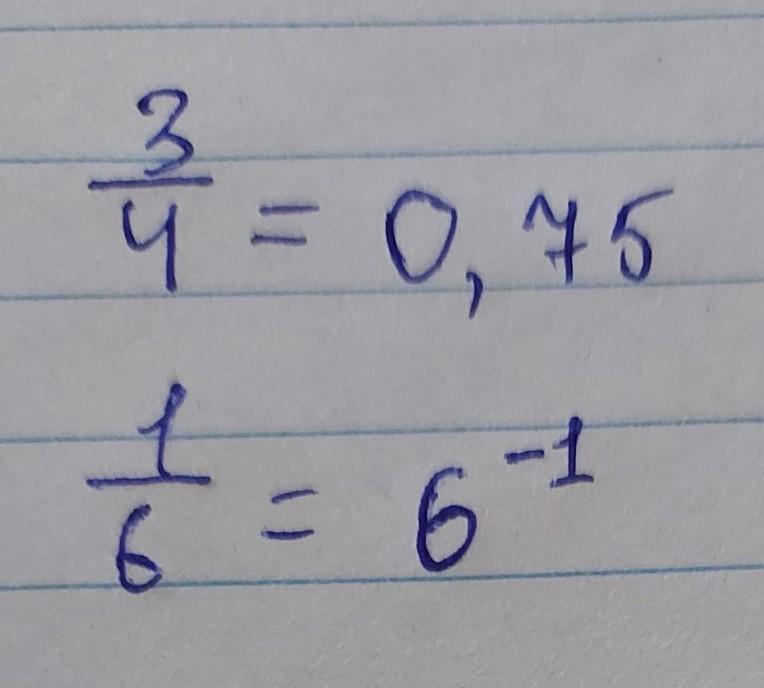 3/4 = 0,75
1/6 = 6⁻¹